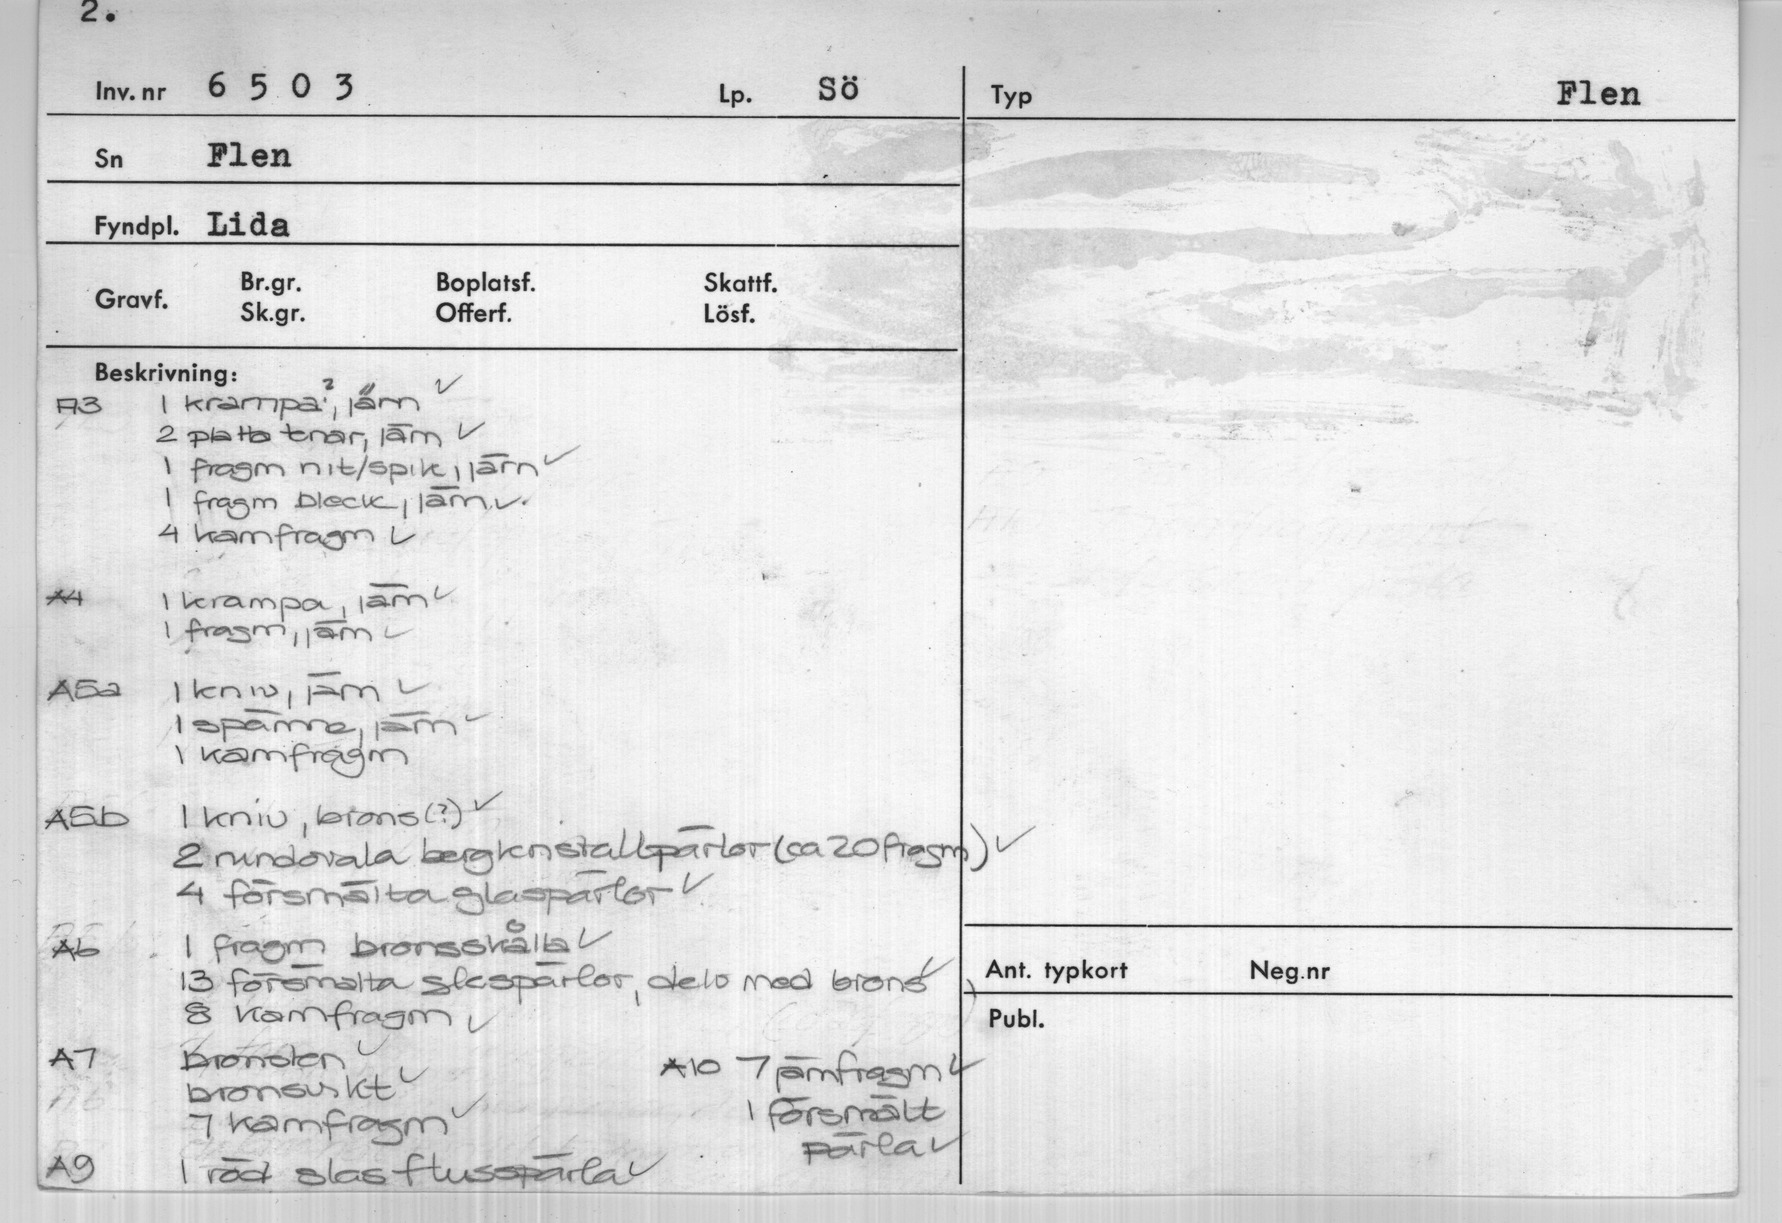 2.
Inv. nr 6 5 0 3 Lp. Sö Typ Flen
Sn Flen
Fyndpl. Lida
Gravf. Br.gr. Boplatsf. Skattf.
Sk.gr. Offerf. Lösf.
Beskrivning:
A3 1 krampa?, järn ✓
2 platta tenar, järn ✓
1 fragm nit/spik, järn ✓
1 fragm bleck, järn ✓
4 kamfragm ✓
A4 1 krampa, järn ✓
1 fragm, järn ✓
A5a 1 kniv, järn ✓
1 spänne, järn ✓
1 kamfragm
A5b 1 kniv, brons (?) ✓
2 rundovala bergkristallpärlor (ca 20 fragm) ✓
4 försmälta glaspärlor ✓
A6 1 fragm bronsskålla ✓
13 försmälta glaspärlor, delv med brons ✓
8 kamfragm ✓
A7 bronsten ✓
bronsvikt ✓
7 kamfragm ✓
A9 1 röd glasflusspärla ✓
A10 7 järnfragm ✓
1 försmält
pärla ✓
Ant. typkort Neg.nr
Publ.